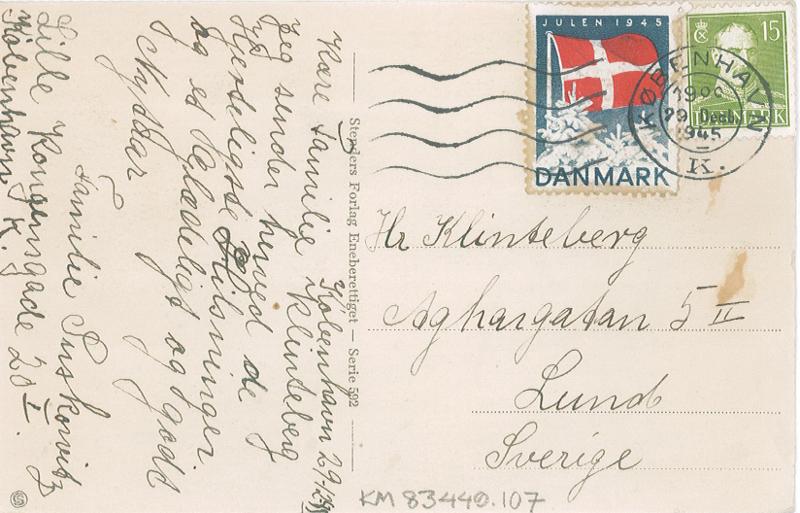 København 29-12-45
Kære Familie Klinteberg
Jeg sender herved de
Hjerteligste Hilsninger
og et Glædeligt og godt
Nyttar
Familie Suskovitz
Lille Kongensgade 20 I.
København K.
Stenders Forlag Eneberettiget — Serie 592
JULEN 1945
DANMARK
15
DANMARK
KØBENHAVN
29 Decbr.
1945
K.
Hr Klinteberg
Aghargatan 5 II
Lund
Sverige
KM 83440.107